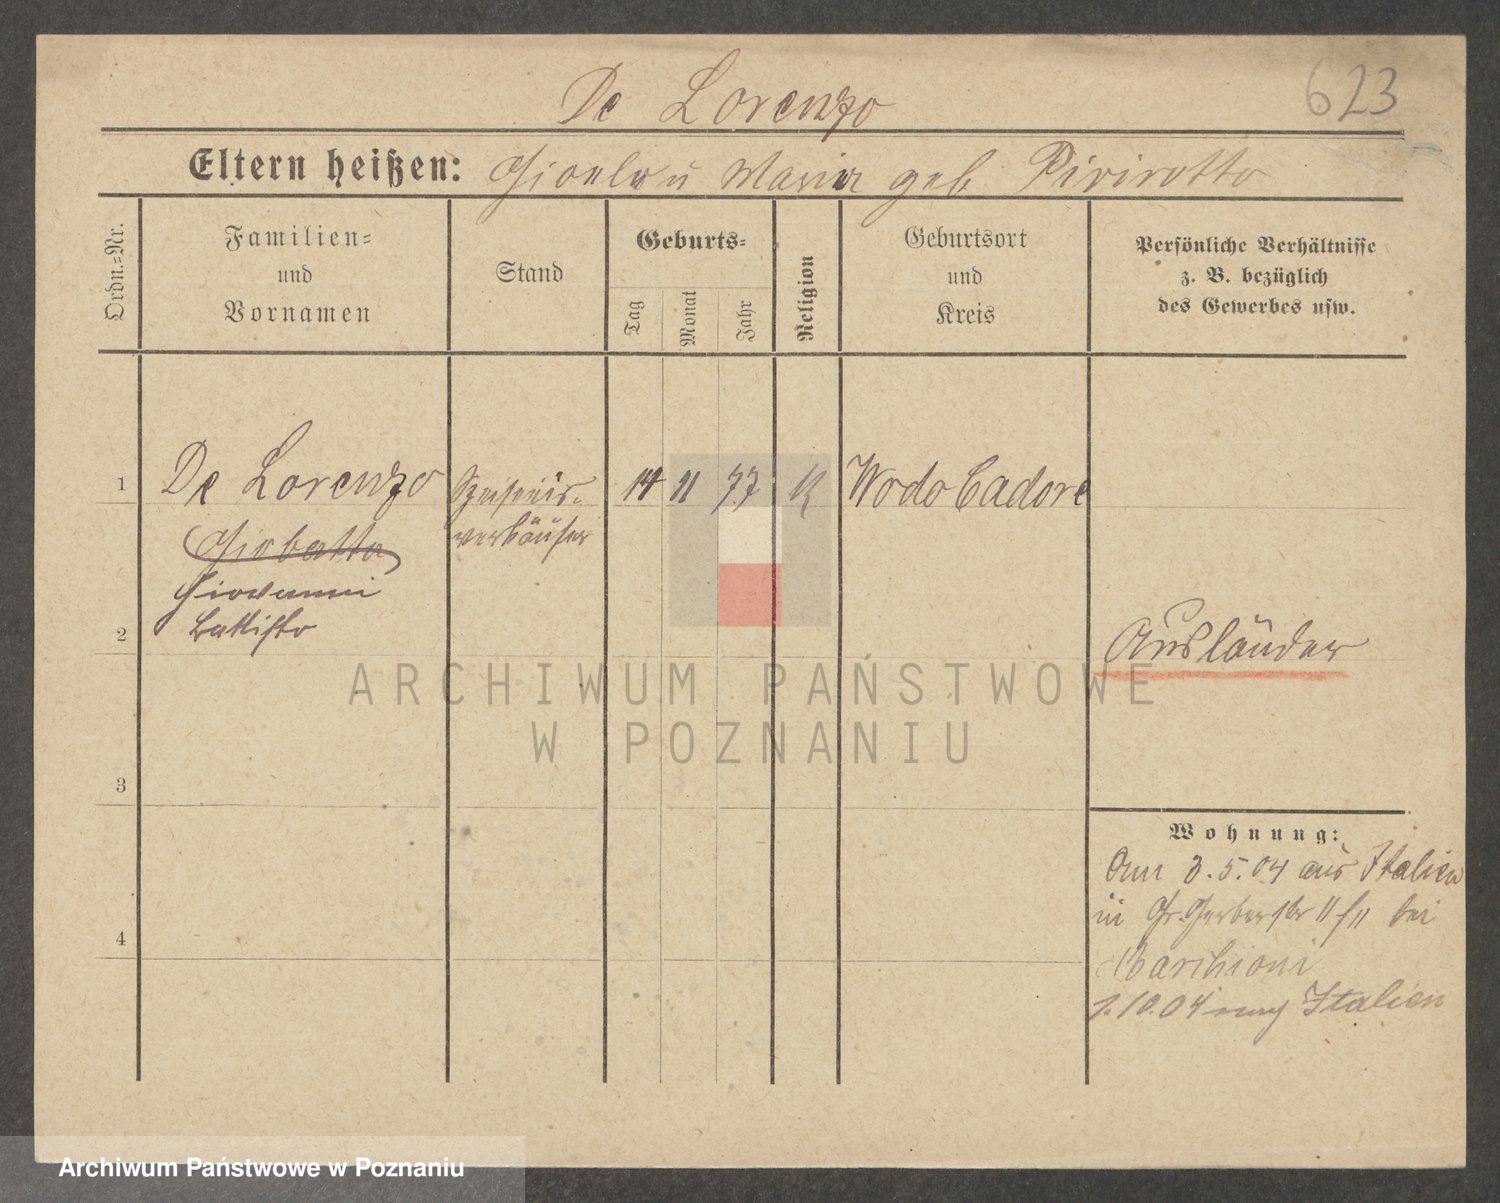 De Lorenzo
623
Eltern heißen: Gioele u Maria geb Pivirotto
Ordn.-Nr.
Familien-
und
Vornamen
Stand
Geburts-
Tag
Monat
Jahr
Religion
Geburtsort
und
Kreis
Persönliche Verhältnisse
z. B. bezüglich
des Gewerbes usw.
1 De Lorenzo Speiseeis- 14 11 77 K Wodo Cadore
Giobatta verkäufer
Giovanni
2 Battista
Ausländer
ARCHIWUM PAŃSTWOWE
W POZNANIU
3
Wohnung:
Am 3.5.04 aus Italien
in Gr. Gerberstr 11 bei
4
Marchioni
1.10.04 nach Italien
Archiwum Państwowe w Poznaniu